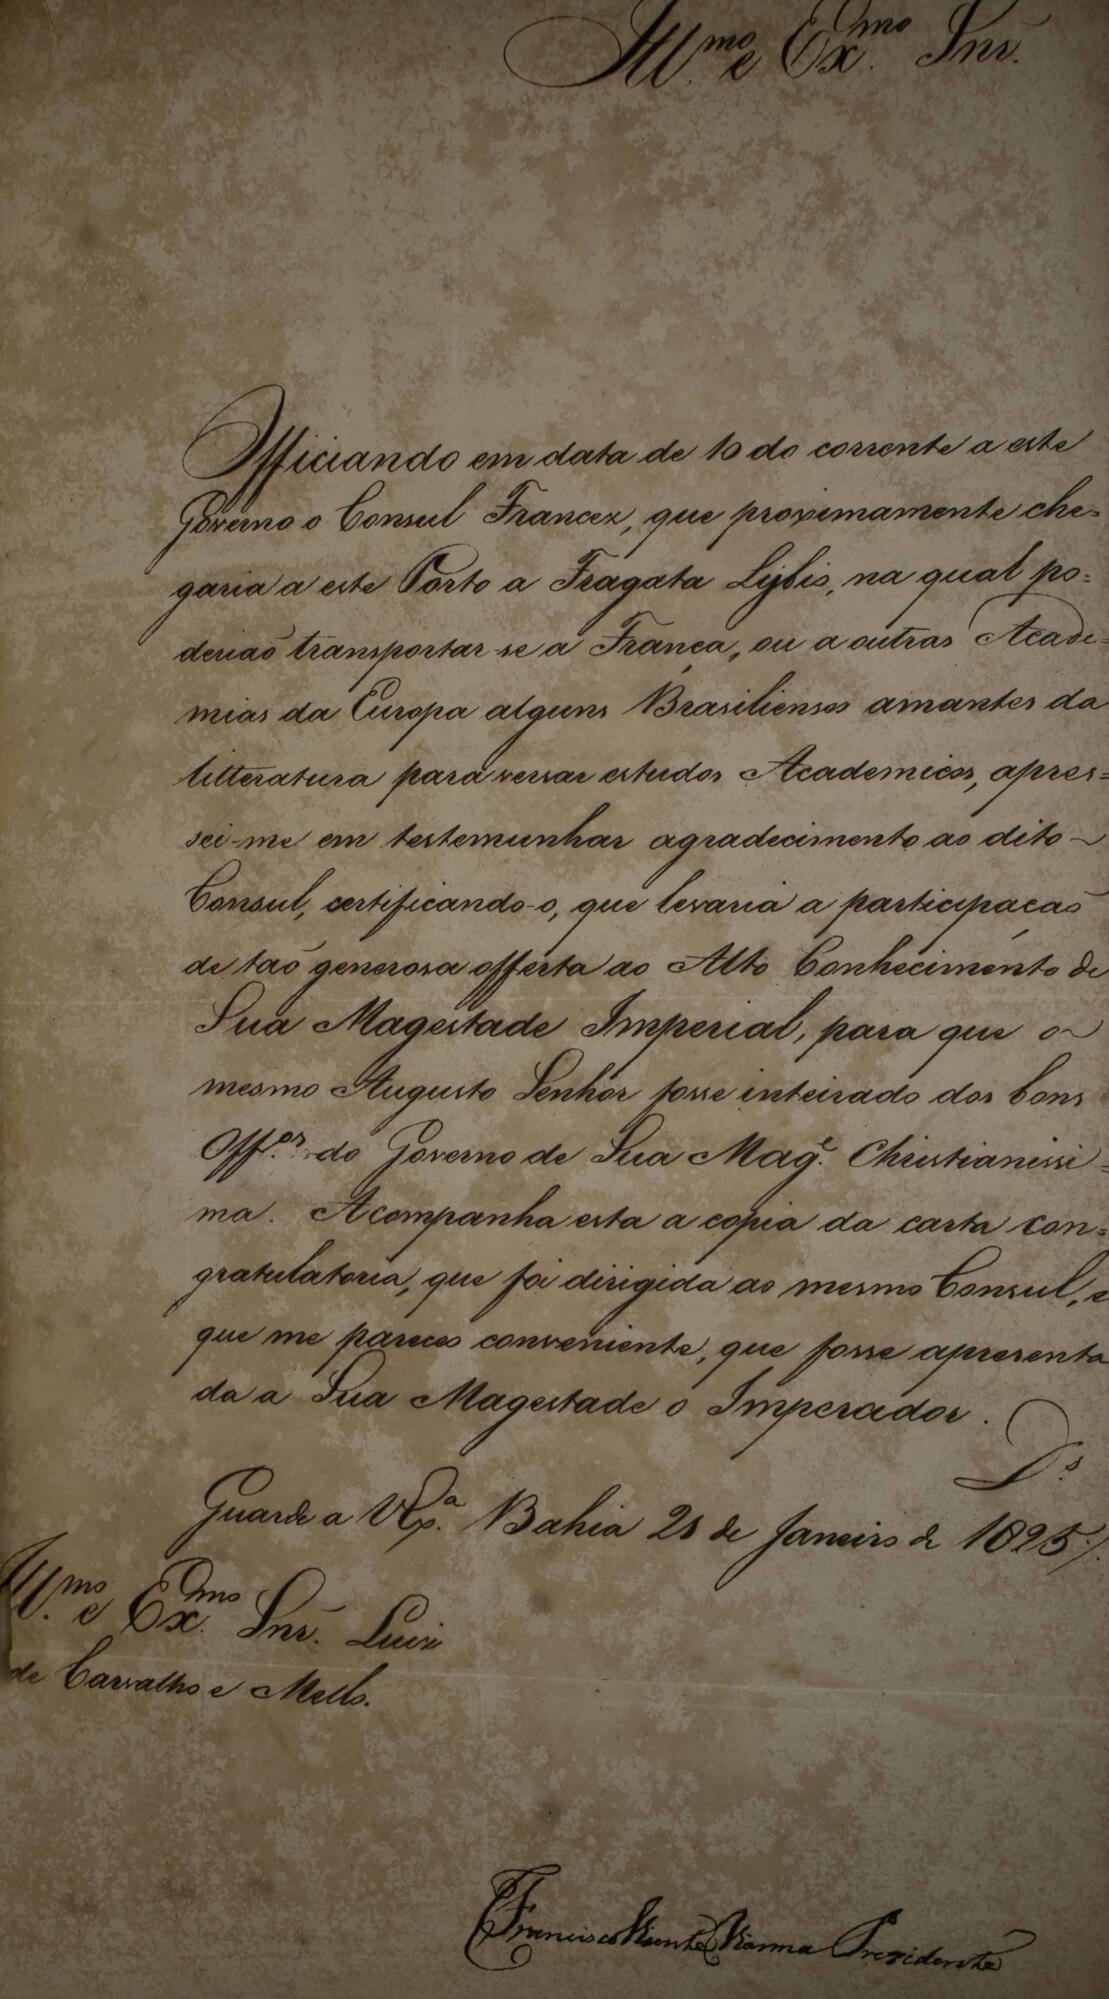 Ill.mo e Ex.mo Snr.
Officiando em data de 10 do corrente a este
Governo o Consul Francez, que proximamente che=
garia a este Porto a Fragata Lybis, na qual po=
deriaõ transportar-se a França, ou a outras Acade=
mias da Europa alguns Brasilienses amantes da
litteratura para versar estudos Academicos, apres=
sei-me em testemunhar agradecimento ao dito
Consul, certificando-o, que levaria a participaçaõ
de taõ generosa offerta ao Alto Conhecimento de
Sua Magestade Imperial, para que o
mesmo Augusto Senhor fosse inteirado dos bons
Off.os do Governo de Sua Mag.e Christianissi=
ma. Acompanha esta a copia da carta con=
gratulatoria, que foi dirigida ao mesmo Consul, e
que me pareceo conveniente, que fosse apresenta
da a Sua Magestade o Imperador.
D.s
Guarde a V Ex.a Bahia 21 de Janeiro de 1825.
Ill.mo e Ex.mo Snr. Luiz
de Carvalho e Mello.
Francisco Vicente Vianna Presidente